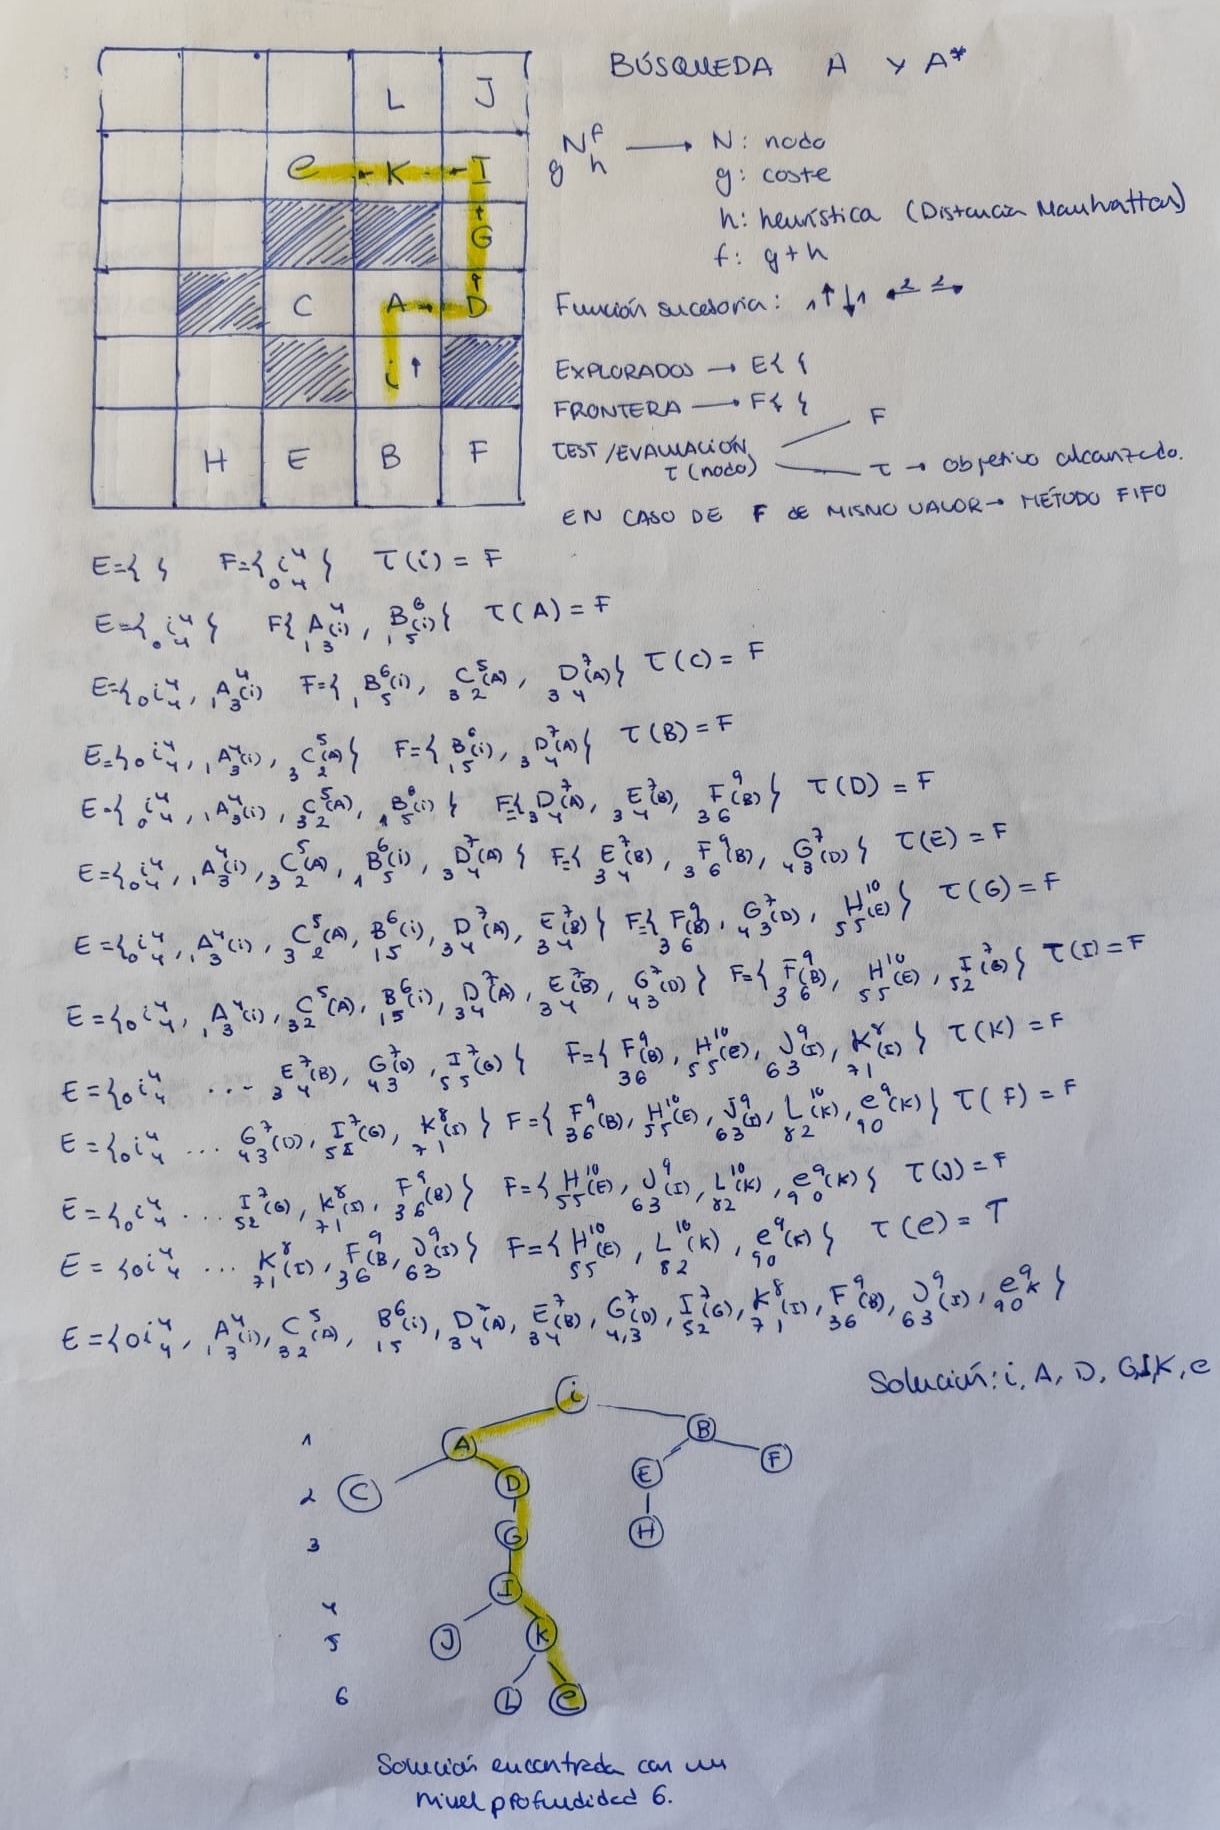 BÚSQUEDA A Y A*
L J
e K I
G
C A D
i
H E B F
g N f h → N: nodo
g: coste
h: heurística (Distancia Manhattan)
f: g+h
Función sucesoria: 1↑ ↓1 ←2 2→
EXPLORADOS → E{ }
FRONTERA → F{ }
TEST/EVALUACIÓN F
T(nodo) T → objetivo alcanzado.
EN CASO DE F DE MISMO VALOR → MÉTODO FIFO
E={ } F={0i4 4} T(i) = F
E={0i4 4} F{1A4 3(i), 1B6 5(i)} T(A) = F
E={0i4 4, 1A4 3(i) F={1B6 5(i), 3C5 2(A), 3D7 4(A)} T(C) = F
E={0i4 4, 1A4 3(i), 3C5 2(A)} F={1B6 5(i), 3D7 4(A)} T(B) = F
E={0i4 4, 1A4 3(i), 3C5 2(A), 1B6 5(i)} F={3D7 4(A), 3E7 4(B), 3F9 6(B)} T(D) = F
E={0i4 4, 1A4 3(i), 3C5 2(A), 1B6 5(i), 3D7 4(A)} F={3E7 4(B), 3F9 6(B), 4G7 3(D)} T(E) = F
E={0i4 4, 1A4 3(i), 3C5 2(A), 1B6 5(i), 3D7 4(A), 3E7 4(B)} F={3F9 6(B), 4G7 3(D), 5H10 5(E)} T(G) = F
E={0i4 4, 1A4 3(i), 3C5 2(A), 1B6 5(i), 3D7 4(A), 3E7 4(B), 4G7 3(D)} F={3F9 6(B), 5H10 5(E), 5I7 2(G)} T(I) = F
E={0i4 4 ... 3E7 4(B), 4G7 3(D), 5I7 5(G)} F={3F9 6(B), 5H10 5(E), 6J9 3(I), 7K8 1(I)} T(K) = F
E={0i4 4 ... 4G7 3(D), 5I7 2(G), 7K8 1(I)} F={3F9 6(B), 5H10 5(E), 6J9 3(I), 8L10 2(K), 9e9 0(K)} T(F) = F
E={0i4 4 ... 5I7 2(G), 7K8 1(I), 3F9 6(B)} F={5H10 5(E), 6J9 3(I), 8L10 2(K), 9e9 0(K)} T(J) = F
E={0i4 4 ... 7K8 1(I), 3F9 6(B, 6J9 3(I)} F={5H10 5(E), 8L10 2(K), 9e9 0(K)} T(e) = T
E={0i4 4, 1A4 3(i), 3C5 2(A), 1B6 5(i), 3D7 4(A), 3E7 4(B), 4G7,3(D), 5I7 2(G), 7K8 1(I), 3F9 6(B), 6J9 3(I), 9e9 0K}
Solución: i, A, D, G,I,K, e
i
1 A B
2 C D E F
3 G H
4 I
5 J K
6 L e
Solución encontrada con un
nivel profundidad 6.